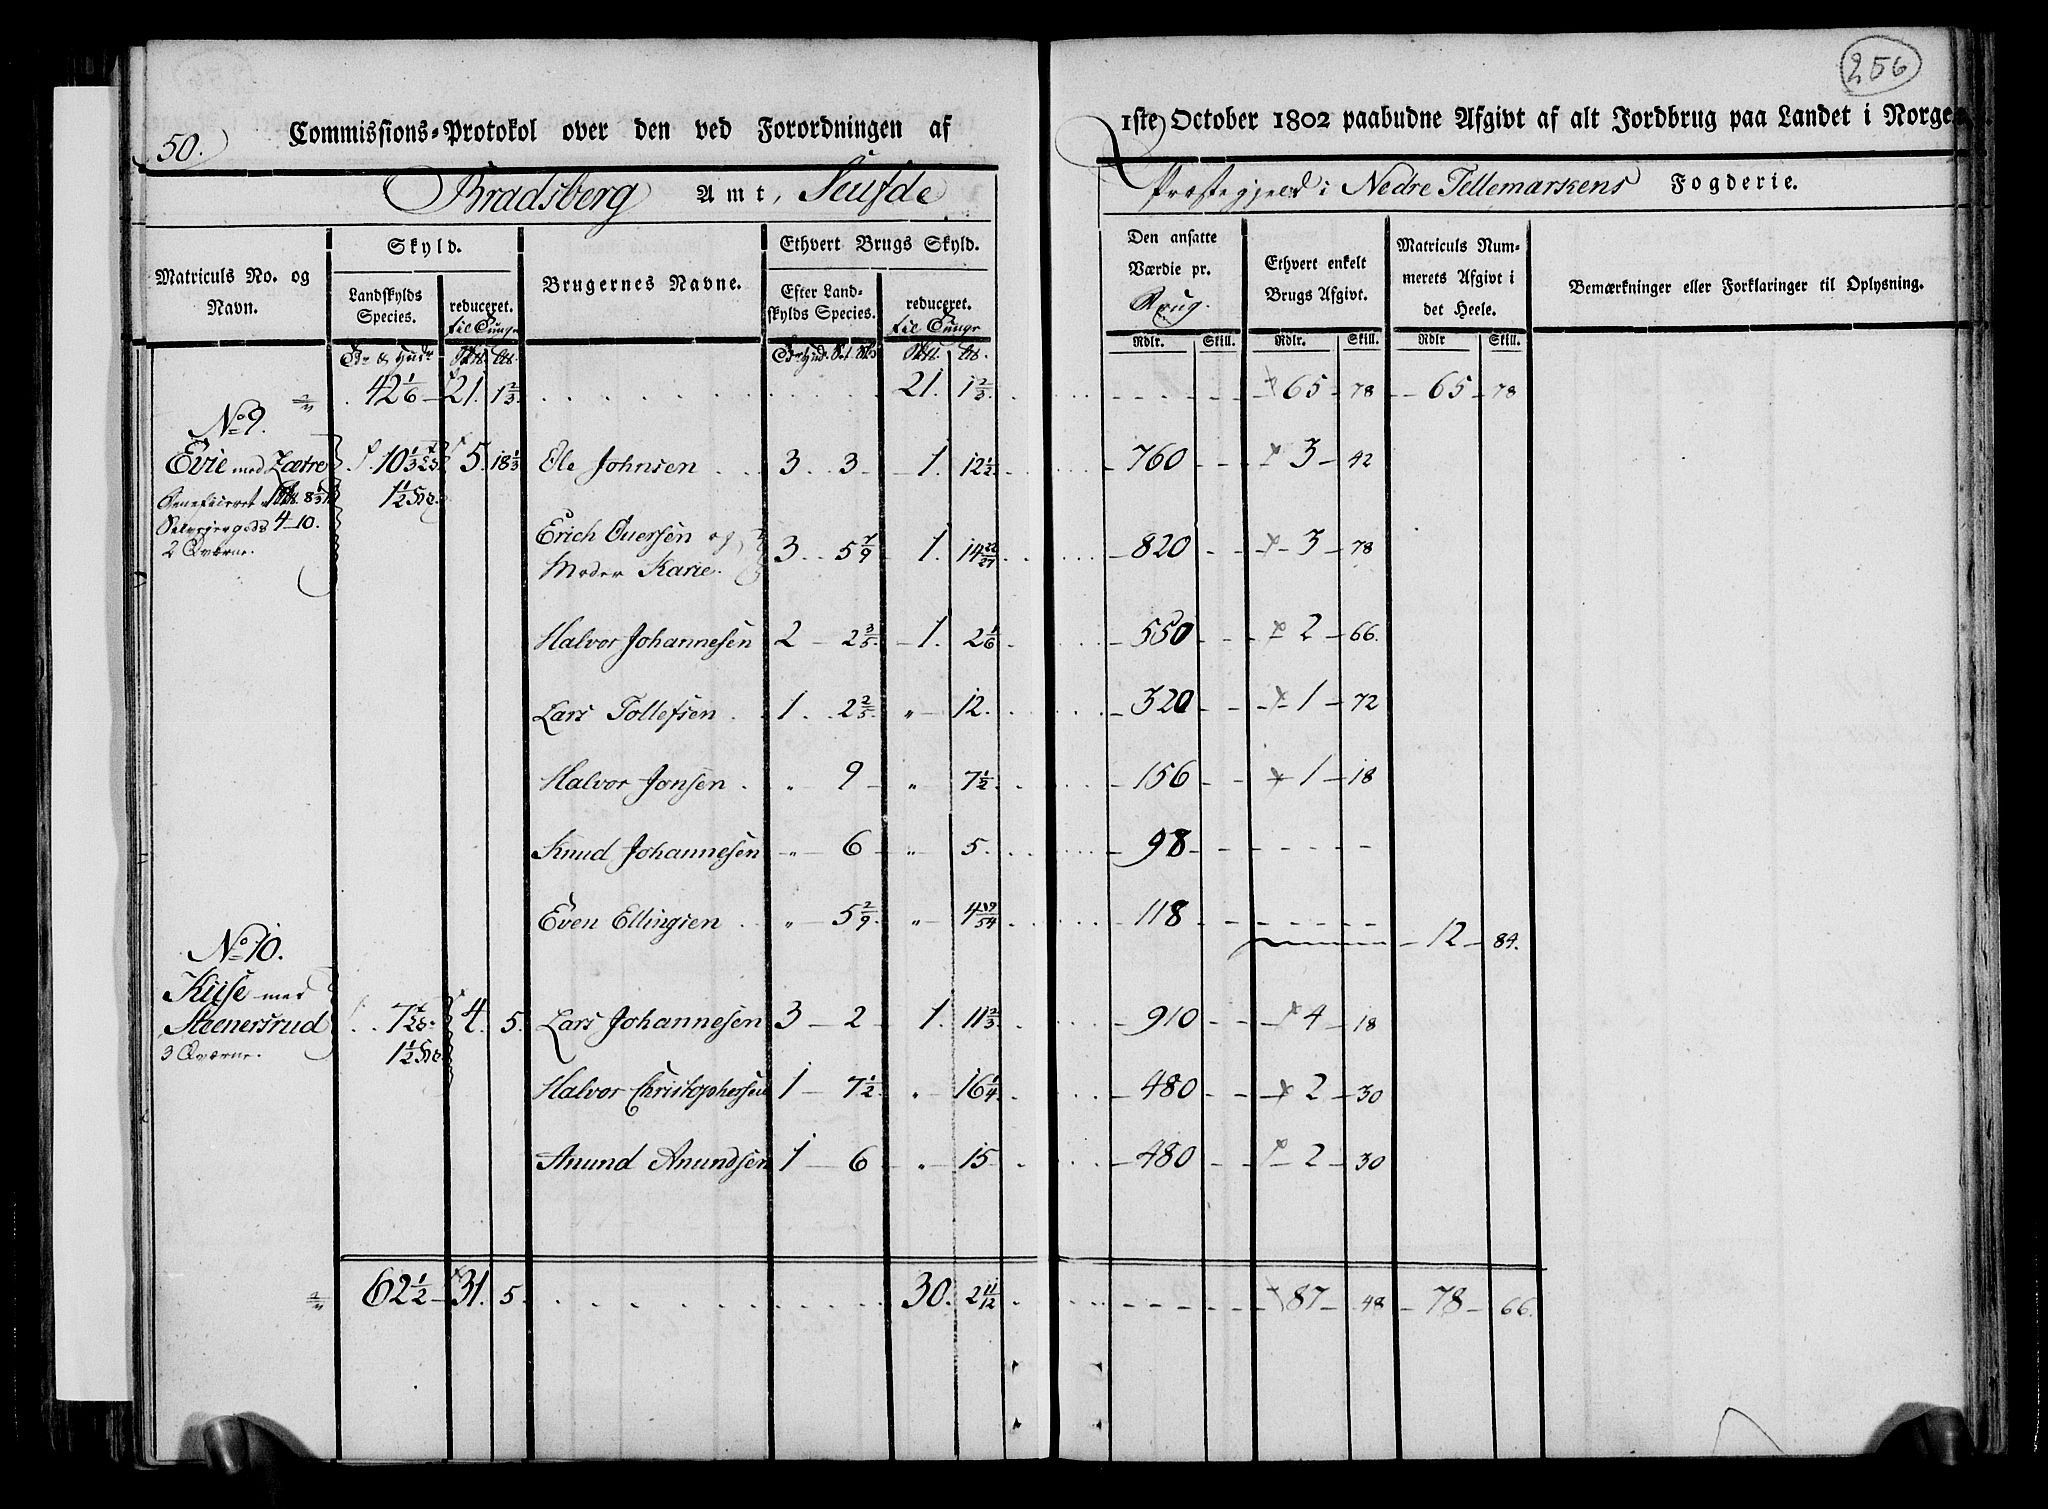 256
50. Commissions-Protokol over den ved Forordningen af 1ste October 1802 paabudne Afgivt af alt Jordbrug paa Landet i Norge
Bradsberg Amt, Seufde Præstegjeld i Nedre Tellemarkens Fogderie.
Matriculs No. og Navn.
Skyld.
Landskylds Species.
reduceret.
til Tunge
Brugernes Navne.
Ethvert Brugs Skyld.
Efter Landskylds Species.
reduceret.
til Tunge
Den ansatte Værdie pr. Brug.
Rdlr. Skill.
Ethvert enkelt Brugs Afgivt.
Rdlr. Skill.
Matriculs Nummerets Afgivt i det Heele.
Rdlr Skill.
Bemærkninger eller Forklaringer til Oplysning.
42 1/6 21. 1 2/3. 21. 1 2/3. 65 78 65 78
No 9.
Evie med Zætre 10 1/3 5. 18 1/3 Ole Johnsen 3 3 1. 12 1/2 760 3 42
1 1/2
4 10.
2 Qværne.
Erich Oversen og
Moder Karie. 3 5 7/9 1. 14 22/27 820 3 78
Halvor Johannesen 2 2 3/5 1. 2 1/6 550 2 66.
Lars Tollefsen 1 2 2/5 " 12. 320 1 72
Halvor Jonsen " 9 " 7 1/2 156 1 18
Knud Johannesen " 6 " 5. 98
Even Ellingsen " 5 2/9 " 4 19/54 118
12 84.
No 10.
Kiise med
Steenersrud 4. 5. Lars Johannesen 3 2 1. 11 2/3 910 4 18
3 Qværne. 1 1/2
Halvor Christophersen 1 7 1/2 " 16 1/4 480 2 30
Anund Anundsen 1 6 " 15 480 2 30
62 1/2 31. 5. 30. 2 11/12 87 48 78 66.